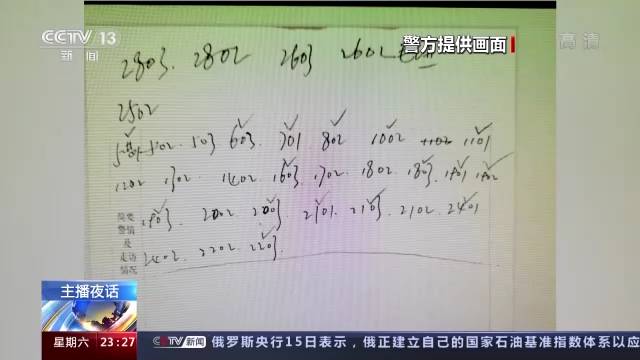 CCTV 13
新闻
警方提供画面
高清
2803. 2802 2603 2602
2502
502 503 603 701 802 1002 1102 1101
1202 1302 1402 1603 1702 1802 1803 1901 1902
1903 2002 2003 2101 2103 2102 2401
2402 2202 2203
简要
警情
及
走访
情况
主播夜话
星期六 23:27
CCTV 新闻 俄罗斯央行15日表示，俄正建立自己的国家石油基准指数体系以应